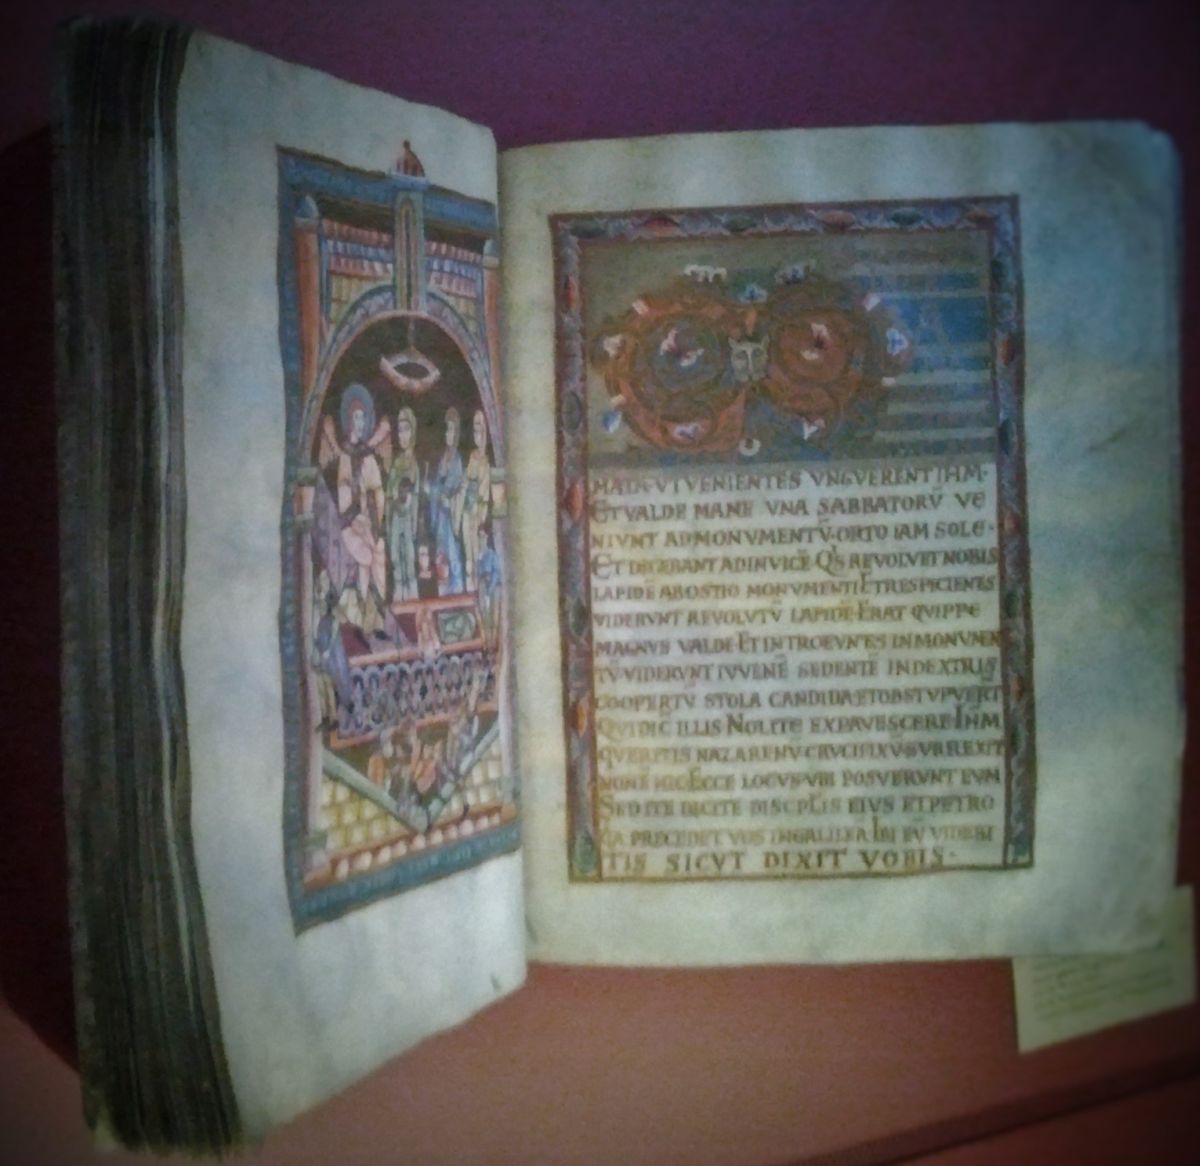 MATA·VT VENIENTES VNGVERENT IHM·
ET VALDE MANE VNA SABBATORV̄ VE
NIVNT AD MONVMENTV̄·ORTO IAM SOLE·
ET DICEBANT AD INVICĒ·QS REVOLVET NOBIS
LAPIDĒ AB OSTIO MONVMENTI ET RESPICIENTES
VIDERVNT REVOLVTV̄ LAPIDĒ·ERAT QVIPPE
MAGNVS VALDE·ET INTROEVNTES IN MONVMEN
TV̄ VIDERVNT IVVENĒ SEDENTĒ IN DEXTRIS
COOPERTV̄ STOLA CANDIDA·ET OBSTVPVERT
QVI DIC̄ ILLIS NOLITE EXPAVESCERE·IHM
QVERITIS NAZARENV̄·CRVCIFIXV̄·SVRREXIT
NON Ē HIC·ECCE LOCVS·VBI POSVERVNT EVM
SED ITE DICITE DISCPLIS EIVS ET PETRO
QA PRECEDET VOS IN GALILEA·IBI EV̄ VIDEBI
TIS SICVT DIXIT VOBIS·